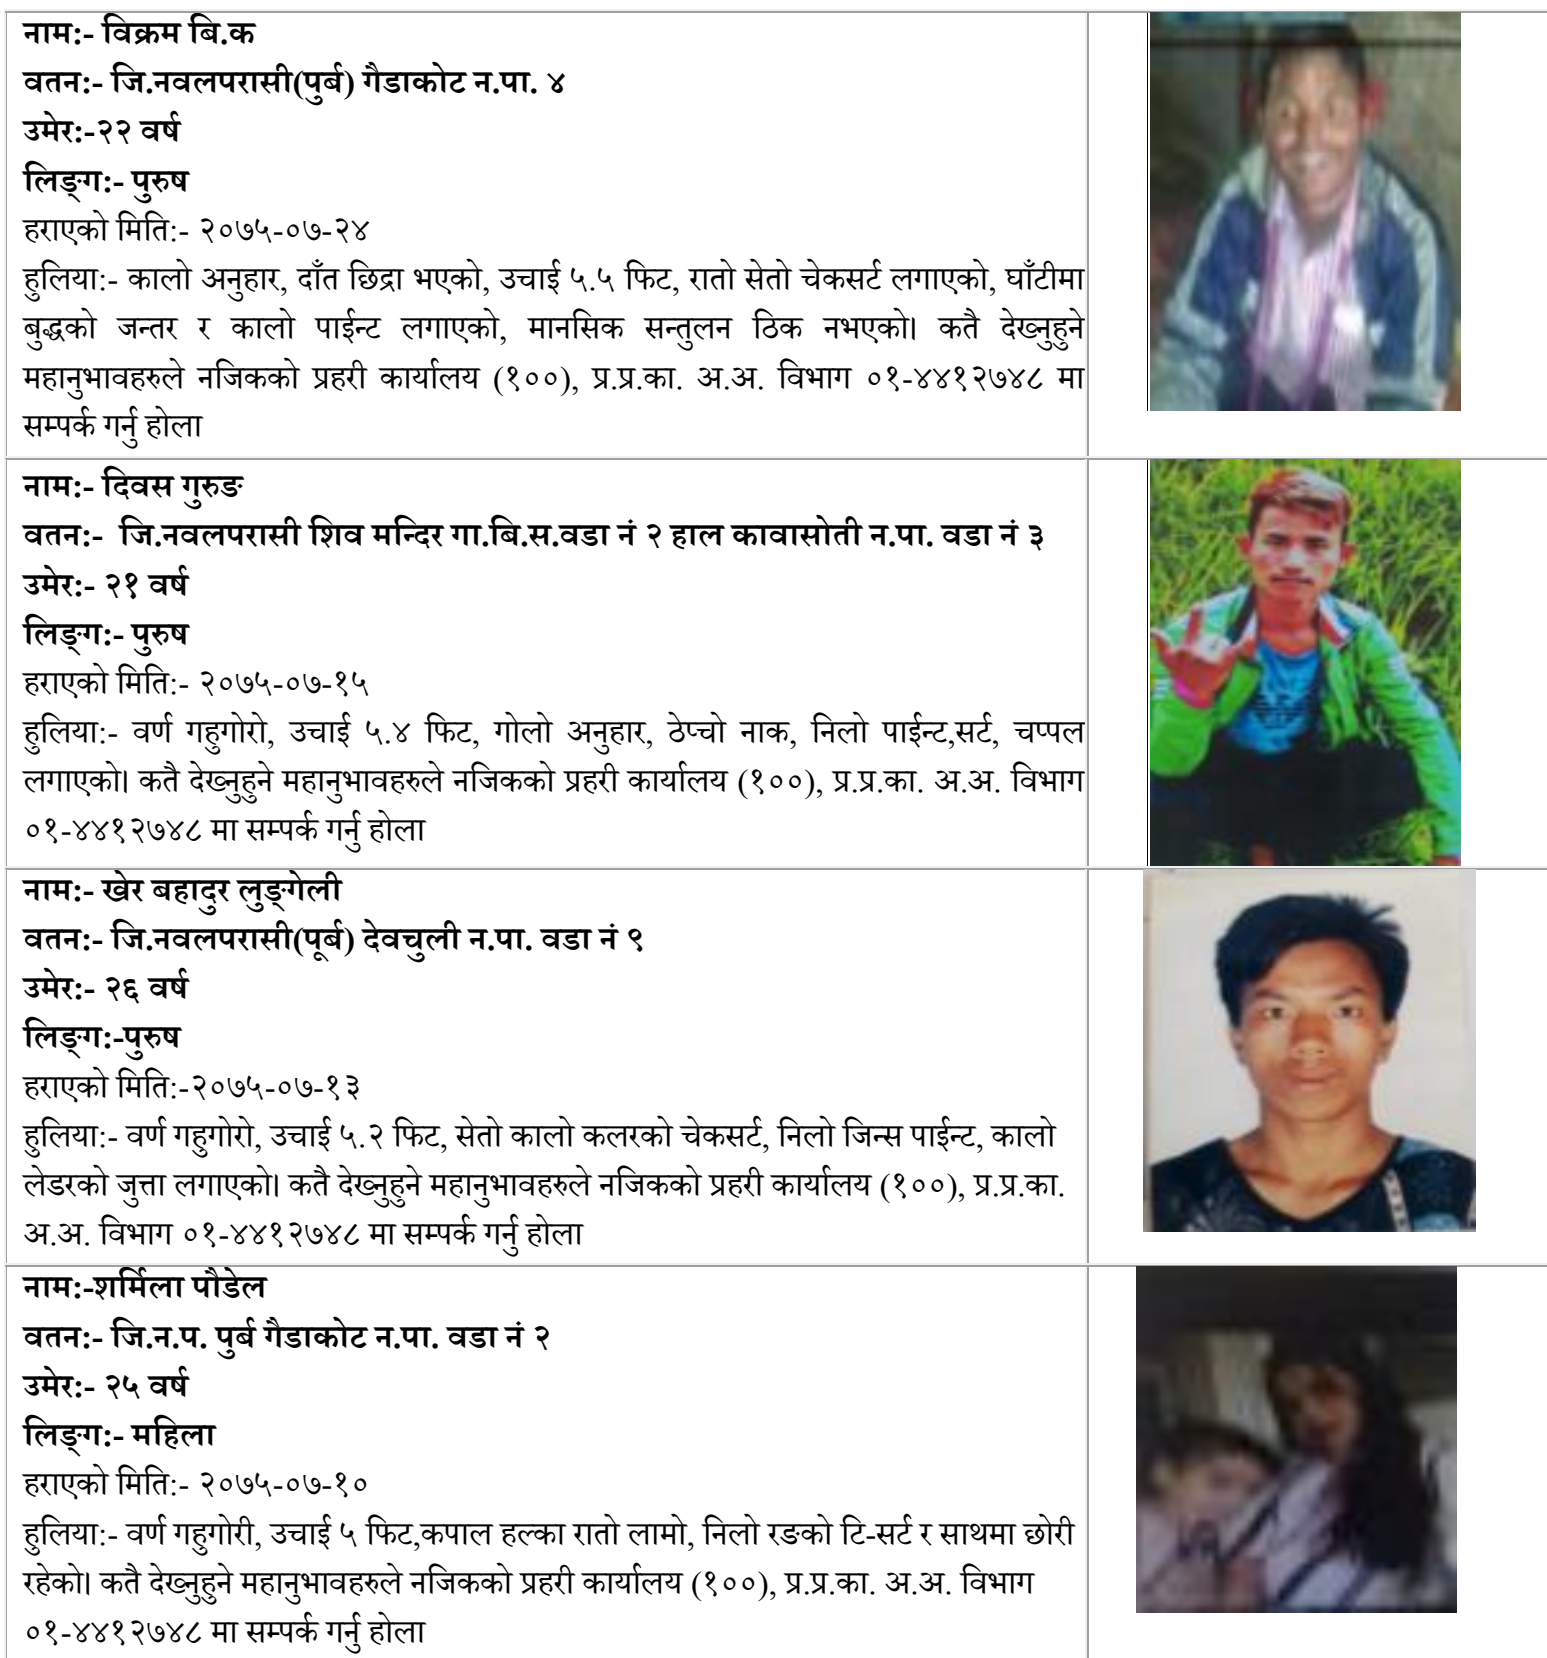 नाम:- विक्रम बि.क
वतन:- जि.नवलपरासी(पुर्ब) गैडाकोट न.पा. ४
उमेर:-२२ वर्ष
लिङ्ग:- पुरुष
हराएको मिति:- २०७५-०७-२४
हुलिया:- कालो अनुहार, दाँत छिद्रा भएको, उचाई ५.५ फिट, रातो सेतो चेकसर्ट लगाएको, घाँटीमा
बुद्धको जन्तर र कालो पाईन्ट लगाएको, मानसिक सन्तुलन ठिक नभएको। कतै देख्नुहुने
महानुभावहरुले नजिकको प्रहरी कार्यालय (१००), प्र.प्र.का. अ.अ. विभाग ०१-४४१२७४८ मा
सम्पर्क गर्नु होला
नाम:- दिवस गुरुङ
वतन:- जि.नवलपरासी शिव मन्दिर गा.बि.स.वडा नं २ हाल कावासोती न.पा. वडा नं ३
उमेर:- २१ वर्ष
लिङ्ग:- पुरुष
हराएको मिति:- २०७५-०७-१५
हुलिया:- वर्ण गहुगोरो, उचाई ५.४ फिट, गोलो अनुहार, ठेप्चो नाक, निलो पाईन्ट,सर्ट, चप्पल
लगाएको। कतै देख्नुहुने महानुभावहरुले नजिकको प्रहरी कार्यालय (१००), प्र.प्र.का. अ.अ. विभाग
०१-४४१२७४८ मा सम्पर्क गर्नु होला
नाम:- खेर बहादुर लुङ्गेली
वतन:- जि.नवलपरासी(पूर्ब) देवचुली न.पा. वडा नं ९
उमेर:- २६ वर्ष
लिङ्ग:-पुरुष
हराएको मिति:-२०७५-०७-१३
हुलिया:- वर्ण गहुगोरो, उचाई ५.२ फिट, सेतो कालो कलरको चेकसर्ट, निलो जिन्स पाईन्ट, कालो
लेडरको जुत्ता लगाएको। कतै देख्नुहुने महानुभावहरुले नजिकको प्रहरी कार्यालय (१००), प्र.प्र.का.
अ.अ. विभाग ०१-४४१२७४८ मा सम्पर्क गर्नु होला
नाम:-शर्मिला पौडेल
वतन:- जि.न.प. पुर्ब गैडाकोट न.पा. वडा नं २
उमेर:- २५ वर्ष
लिङ्ग:- महिला
हराएको मिति:- २०७५-०७-१०
हुलिया:- वर्ण गहुगोरी, उचाई ५ फिट,कपाल हल्का रातो लामो, निलो रङको टि-सर्ट र साथमा छोरी
रहेको। कतै देख्नुहुने महानुभावहरुले नजिकको प्रहरी कार्यालय (१००), प्र.प्र.का. अ.अ. विभाग
०१-४४१२७४८ मा सम्पर्क गर्नु होला